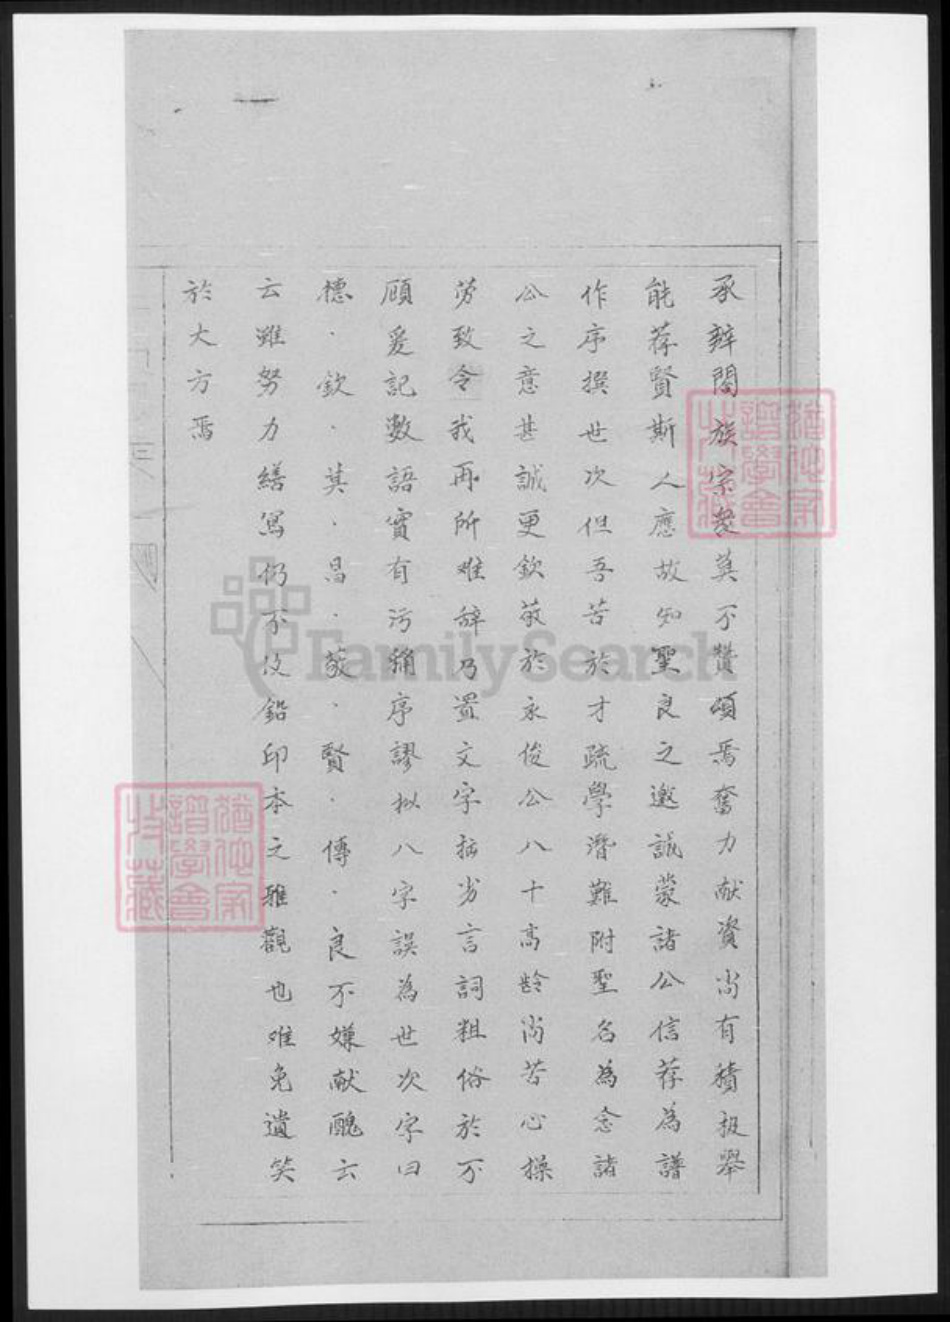 承辦閤族宗衆莫不贊頌焉奮力献資尚有積极舉
能荐賢斯人應故知聖良之邀誠蒙諸公信荐為譜
作序撰世次但吾苦於才疏學潛難附聖名為念諸
公之意甚誠更欽敬於永俊公八十高龄尚苦心操
勞致令我再所难辞乃置文字拙劣言詞粗俗於不
顧爰記數語實有污稱序謬拟八字誤為世次字曰
德．欽．其．昌．敬．賢．傳．良不嫌献醜云
云雖努力繕寫仍不及鉛印本之雅觀也难免遺笑
於大方焉
FamilySearch